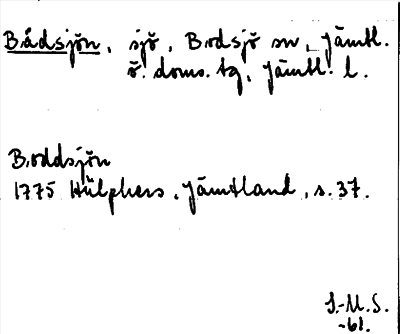 Bådsjön, sjö, Bodsjö sn, Jämtl.
ö. doms. tg, Jämtl. l.
Boddsjön
1775 Hülphers, Jämtland, s. 37.
J.-M.S.
-61.